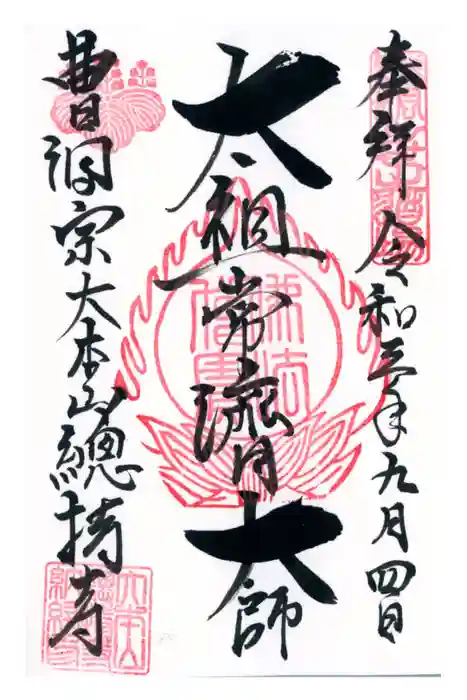 奉拜 令和三年九月四日
太祖常濟大師
曹洞宗大本山總持寺
佛法僧寶